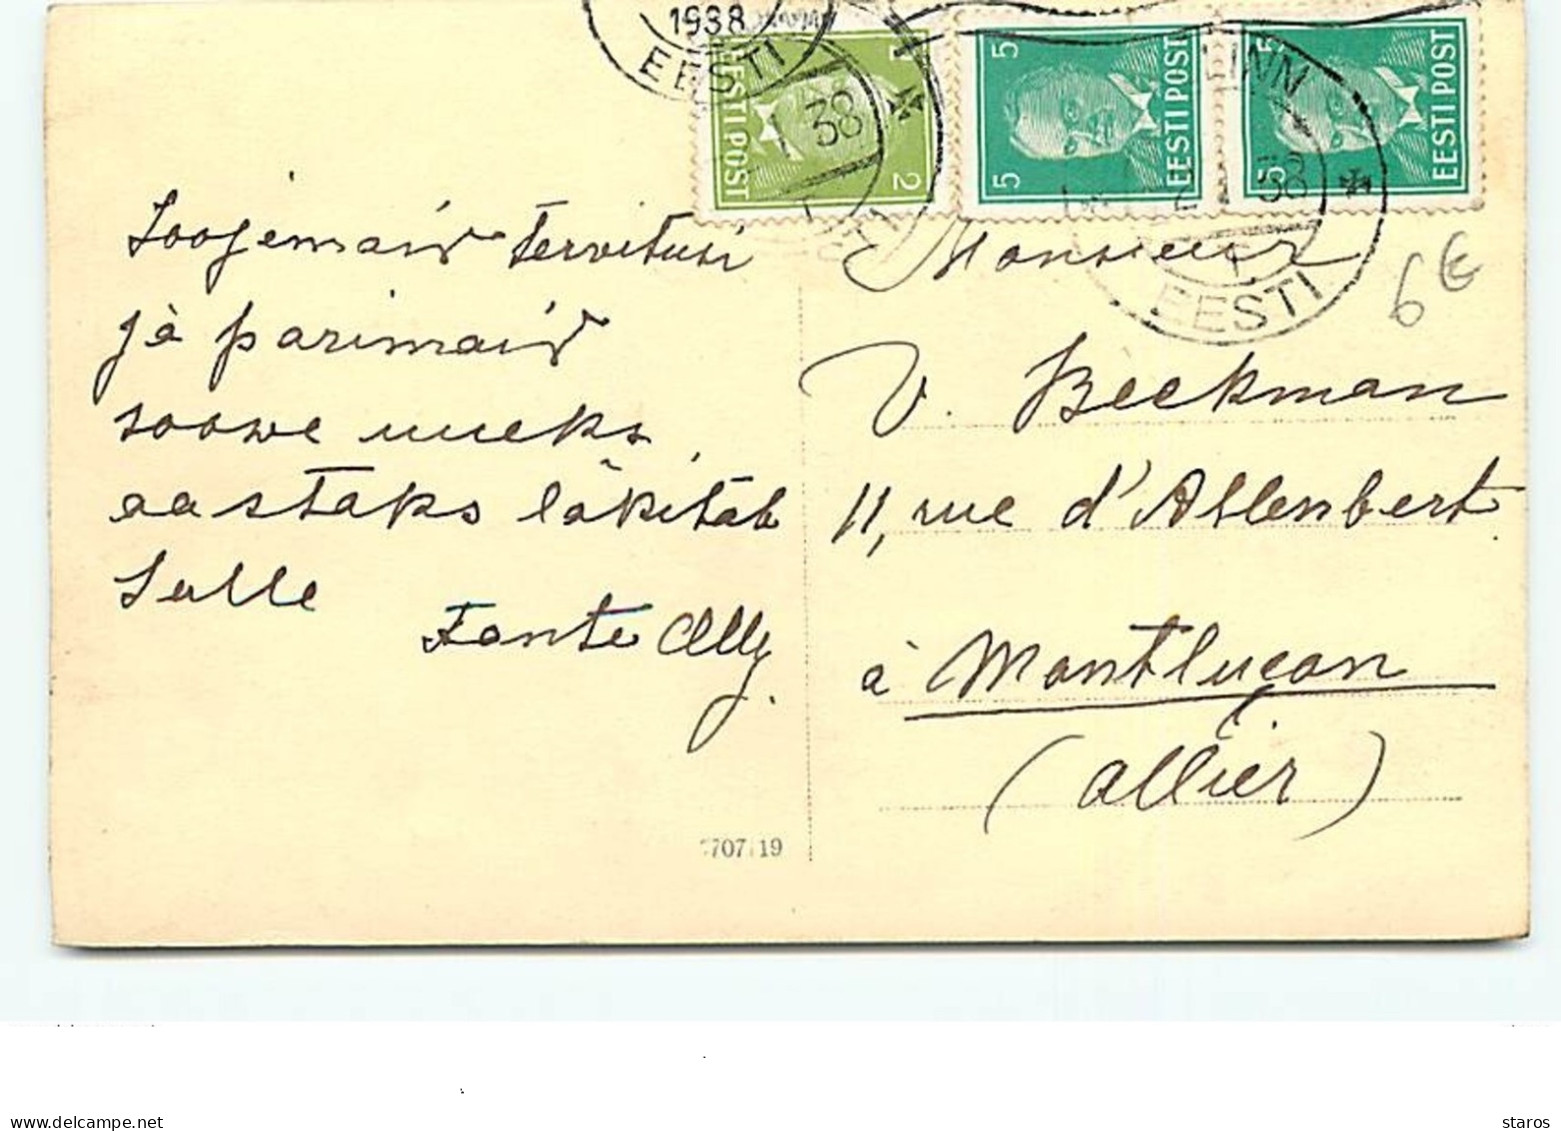 1938
EESTI
EESTI POST
2
2
38
EESTI POST
5
5
EESTI POST
5
5
LINN
38
EESTI
6 €
Soojemaid tervitusi
ja parimaid
soowe uueks
aastaks läkitab
Sulle
Tante Elly.
Monsieur
V. Beekman
11, rue d'Allenbert
à Montluçon
(Allier)
707/19
www.delcampe.net
staros